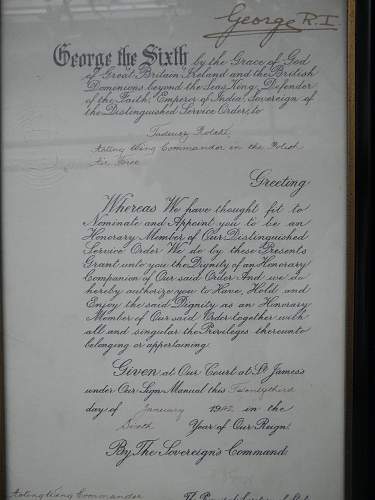 George R.I.
George the Sixth by the Grace of God
of Great Britain, Ireland and the British
Dominions beyond the Seas King, Defender
of the Faith, Emperor of India, Sovereign of
the Distinguished Service Order, to
Acting Wing Commander in the Polish
Air Force
Greeting
Whereas We have thought fit to
Nominate and Appoint you to be an
Honorary Member of Our Distinguished
Service Order We do by these Presents
Grant unto you the Dignity of an Honorary
Companion of Our said Order And we do
hereby authorize you to Have, Hold and
Enjoy the said Dignity as an Honorary
Member of Our said Order together with
all and singular the Privileges thereunto
belonging or appertaining.
Given at Our Court at St. James's
under Our Sign Manual this Twenty third
day of January 1942 in the
Sixth Year of Our Reign.
By The Sovereign's Command.
Acting Wing Commander